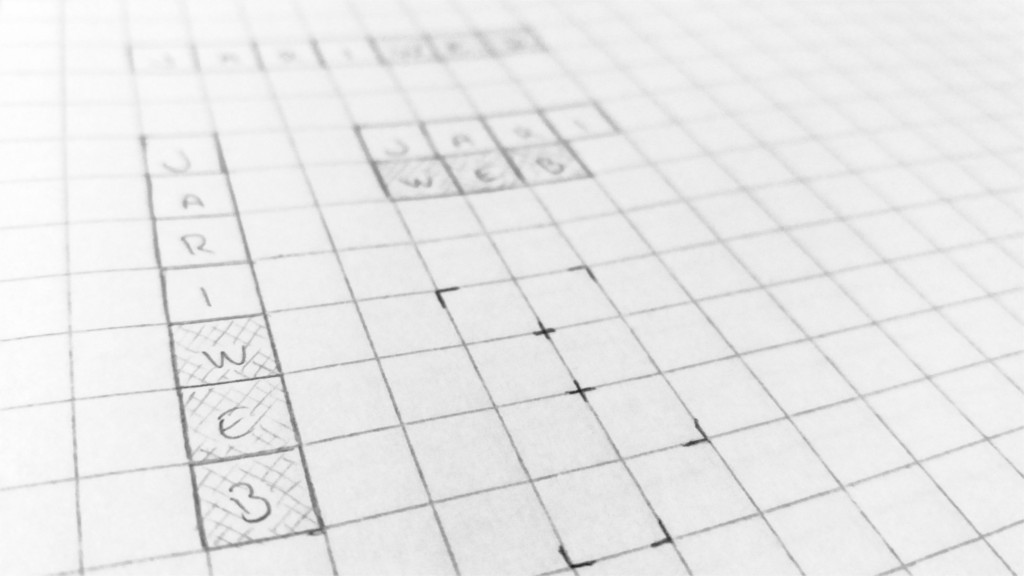 JARIWEB
JARI
WEB
J
A
R
I
W
E
B